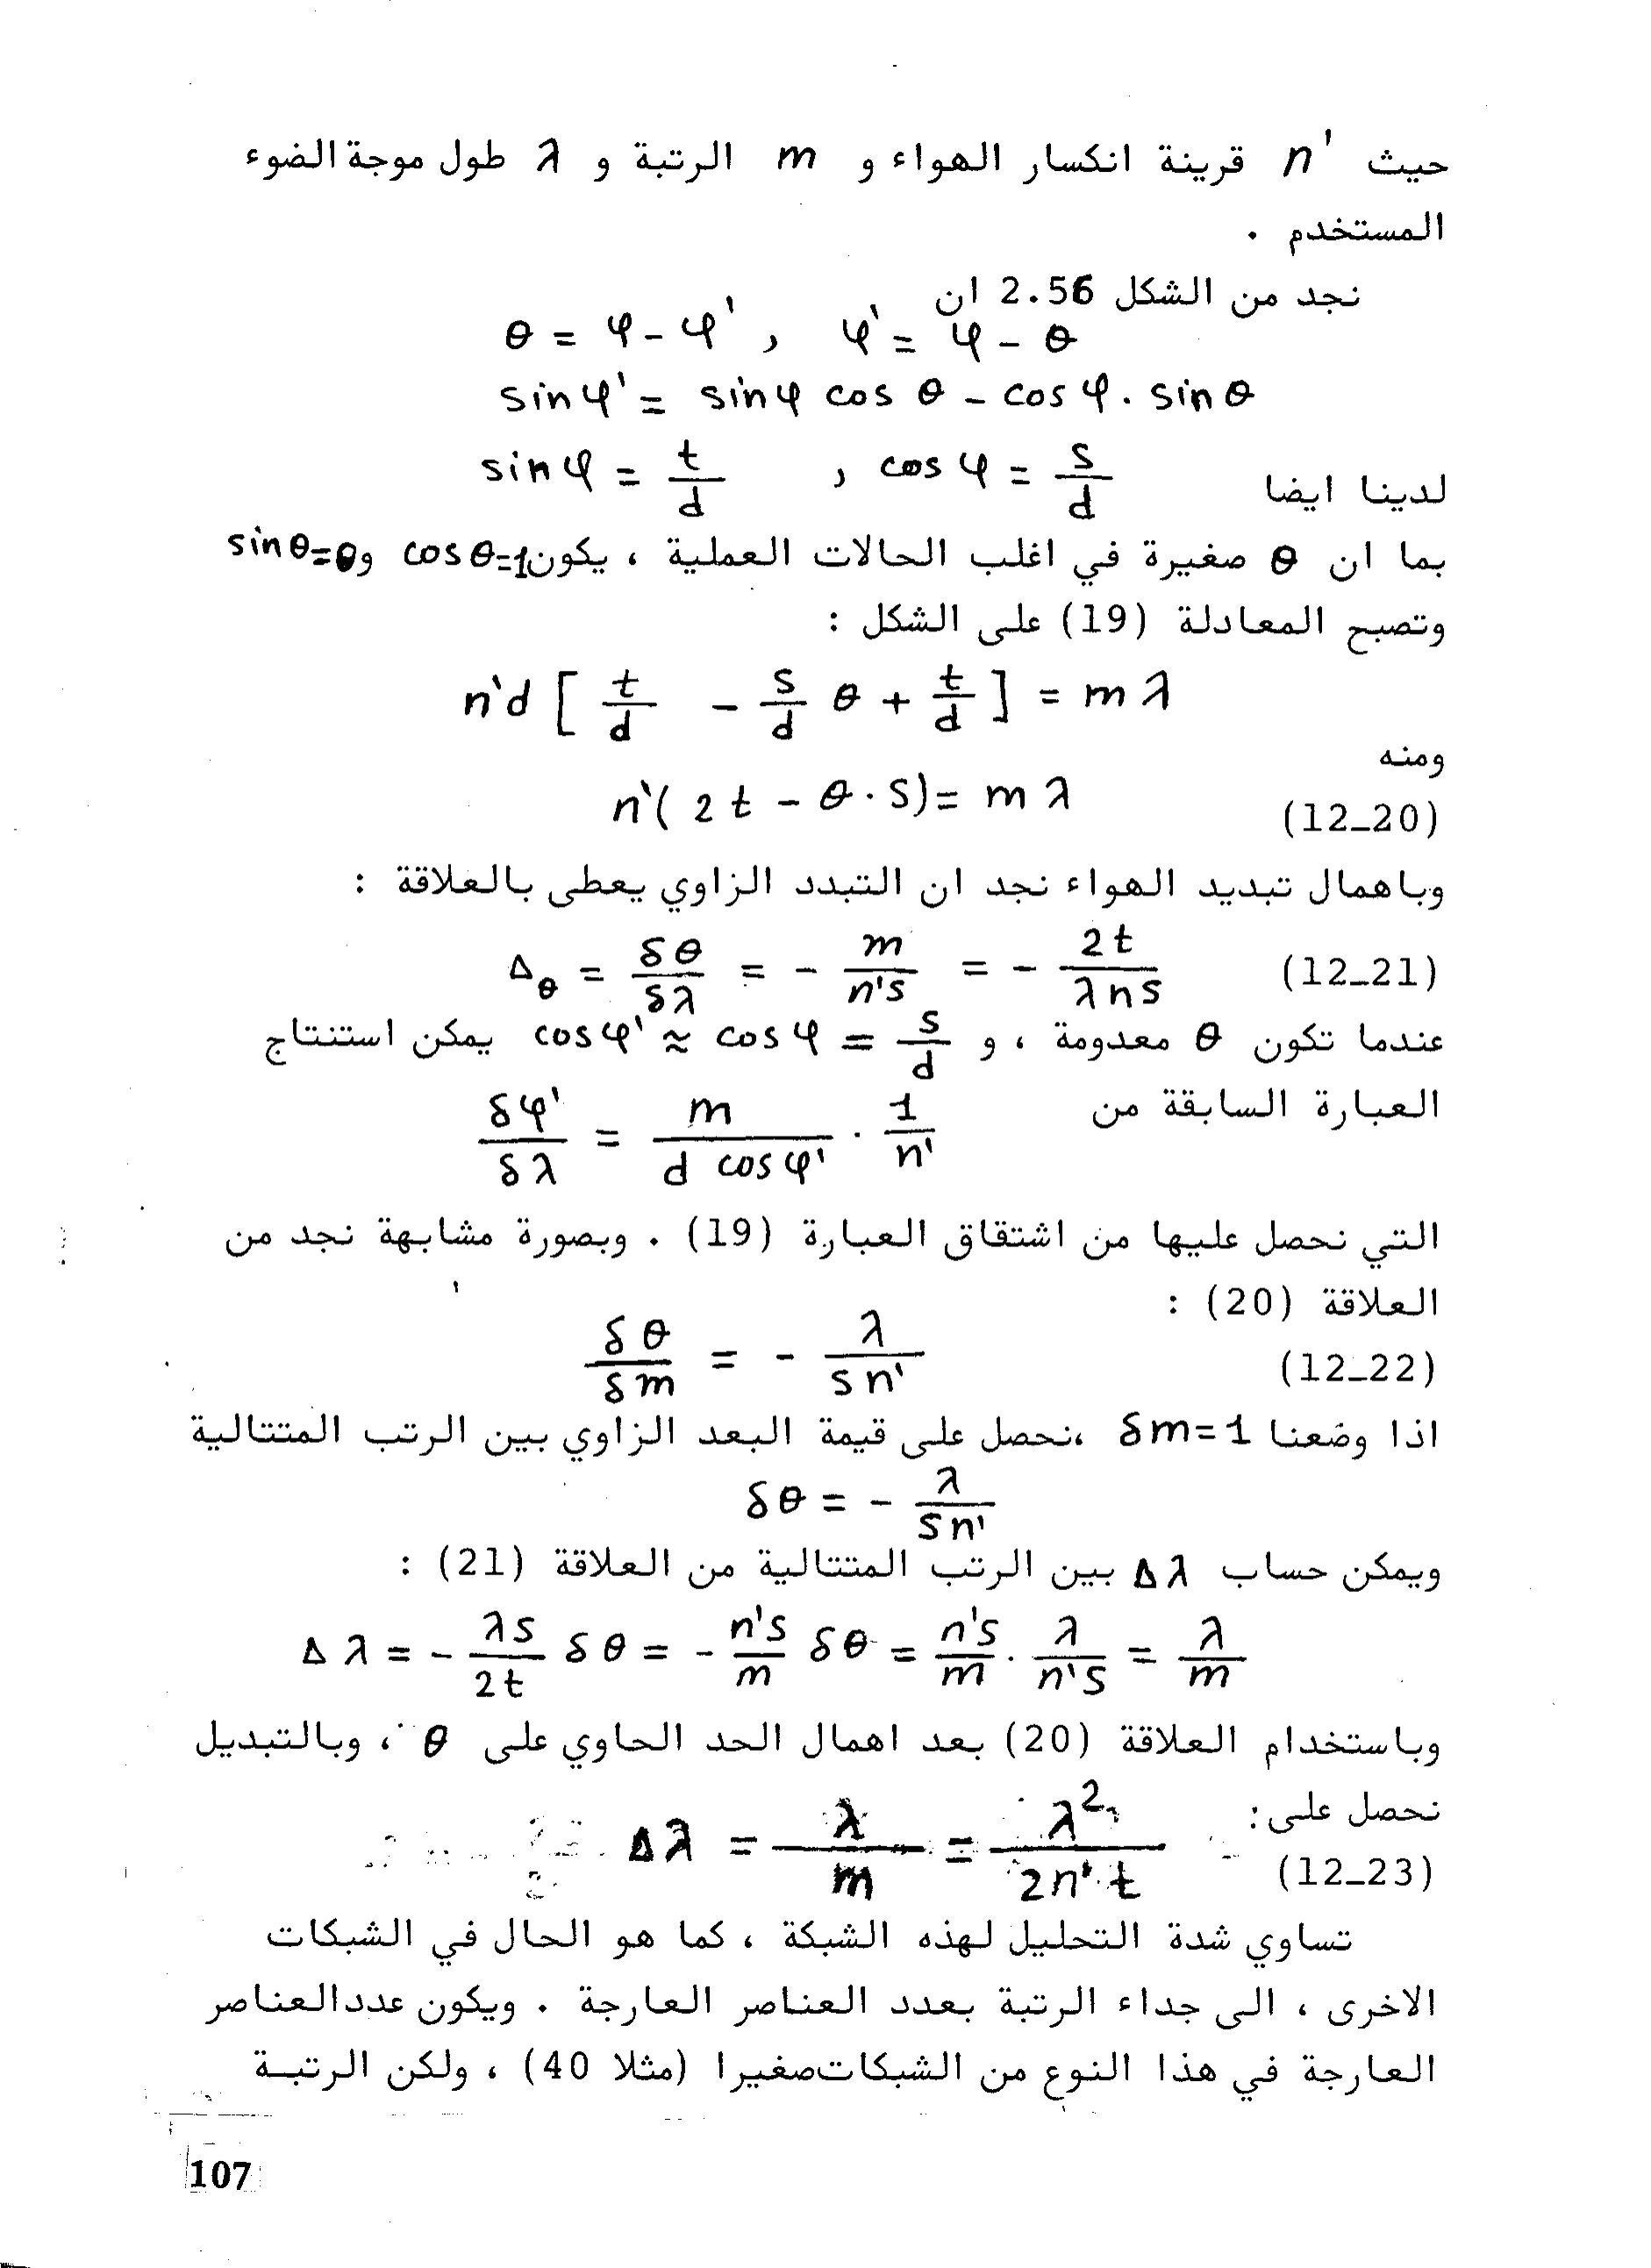 حيث n' قرينة انكسار الهواء و m الرتبة و λ طول موجة الضوء
المستخدم .
نجد من الشكل 2.56 ان
θ = φ - φ' , φ' = φ - θ
sin φ' = sin φ cos θ - cos φ . sin θ
لدينا ايضا sin φ = t/d , cos φ = s/d
بما ان θ صغيرة في اغلب الحالات العملية ، يكون cos θ=1 و sin θ=θ
وتصبح المعادلة (19) على الشكل :
n'd [ t/d - s/d θ + t/d ] = m λ
ومنه
n'( 2 t - θ . S) = m λ (12_20)
وباهمال تبديد الهواء نجد ان التبدد الزاوي يعطى بالعلاقة :
Δθ = δθ/δλ = - m/n's = - 2t/λns (12_21)
عندما تكون θ معدومة ، و cos φ' ≈ cos φ = s/d يمكن استنتاج
العبارة السابقة من δφ'/δλ = m/(d cos φ') . 1/n'
التي نحصل عليها من اشتقاق العبارة (19) . وبصورة مشابهة نجد من
العلاقة (20) :
δθ/δm = - λ/sn' (12_22)
اذا وضعنا δm=1 ،نحصل على قيمة البعد الزاوي بين الرتب المتتالية
δθ = - λ/Sn'
ويمكن حساب Δλ بين الرتب المتتالية من العلاقة (21) :
Δλ = - λs/2t δθ = - n's/m δθ = n's/m . λ/n's = λ/m
وباستخدام العلاقة (20) بعد اهمال الحد الحاوي على θ ، وبالتبديل
نحصل على:
Δλ = λ/m = λ²/2n't (12_23)
تساوي شدة التحليل لهذه الشبكة ، كما هو الحال في الشبكات
الاخرى ، الى جداء الرتبة بعدد العناصر العارجة . ويكون عدد العناصر
العارجة في هذا النوع من الشبكات صغيرا (مثلا 40) ، ولكن الرتبـة
107